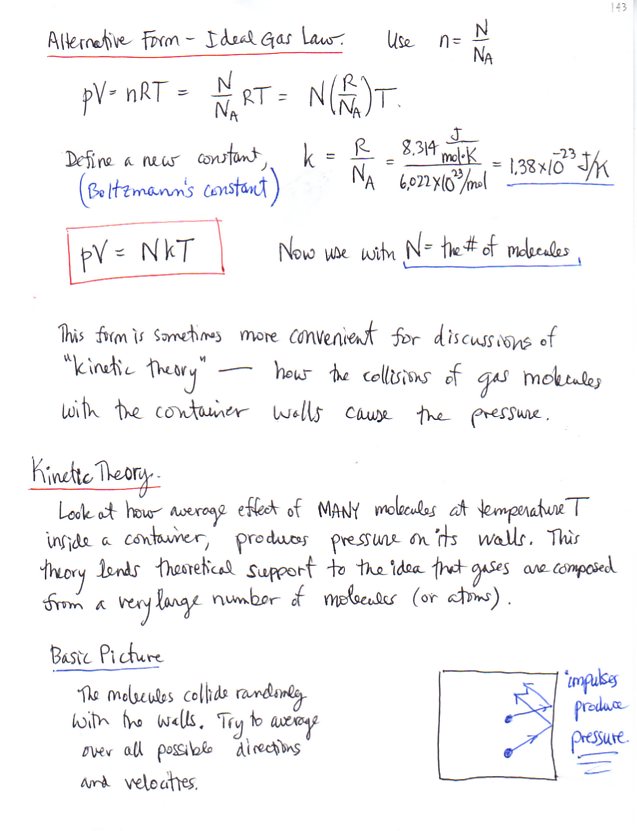 143
Alternative Form - Ideal Gas Law. Use n = N/N_A
pV = nRT = N/N_A RT = N(R/N_A)T.
Define a new constant, k = R/N_A = 8.314 J/mol·K / 6.022×10^23/mol = 1.38×10^-23 J/K
(Boltzmann's constant)
pV = NkT Now use with N = the # of molecules.
This form is sometimes more convenient for discussions of
"kinetic theory" — how the collisions of gas molecules
with the container walls cause the pressure.
Kinetic Theory.
Look at how average effect of MANY molecules at temperature T
inside a container, produces pressure on its walls. This
theory lends theoretical support to the idea that gases are composed
from a very large number of molecules (or atoms).
Basic Picture
The molecules collide randomly
with the walls. Try to average
over all possible directions
and velocities.
impulses
produce
pressure.